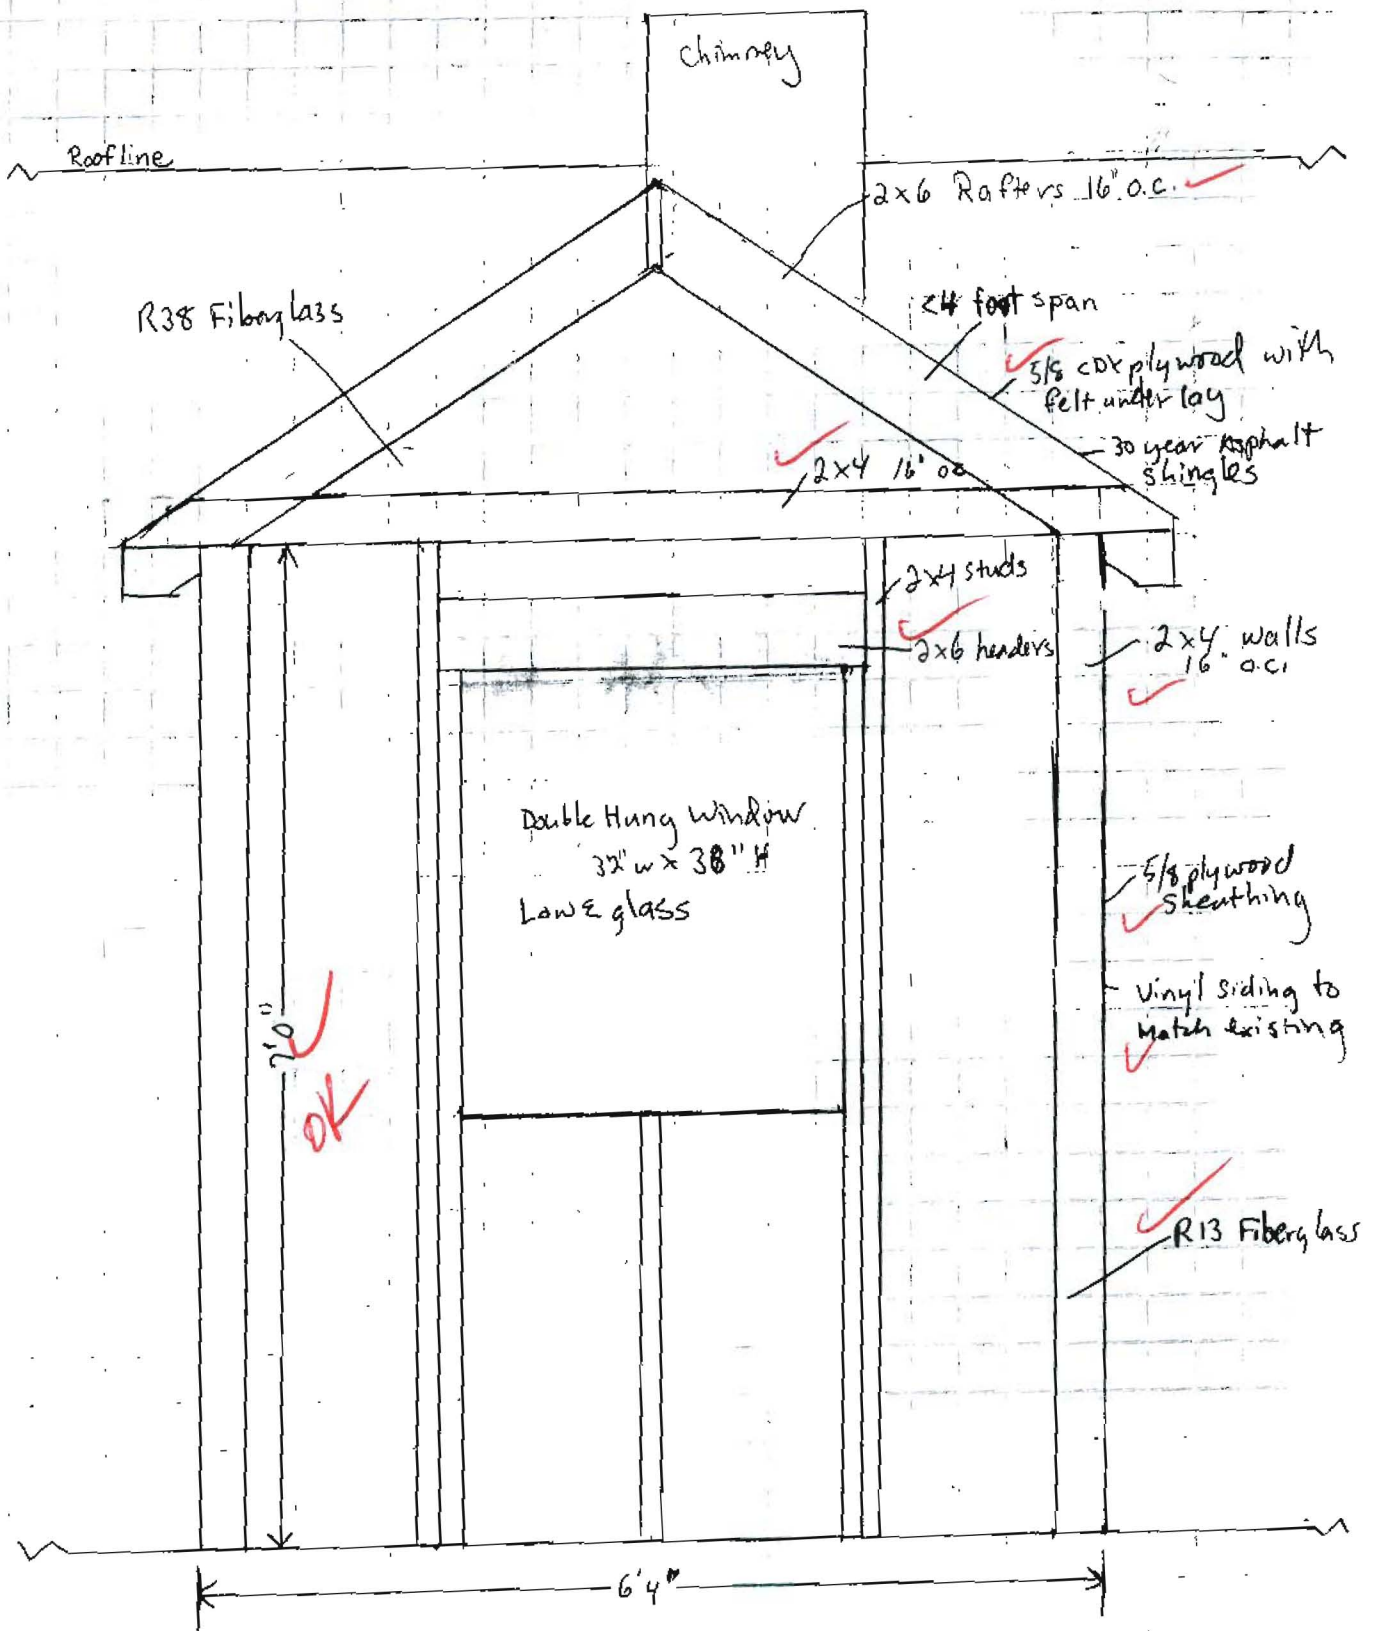 Chimney
Roofline
2x6 Rafters 16" o.c.
R38 Fiberglass
<4 foot span
5/8 CDX plywood with
felt underlay
30 year Asphalt
shingles
2x4 16" oc
2x4 studs
2x6 headers
2x4 walls
16" o.c.
Double Hung Window
32" w x 38" H
Low E glass
5/8 plywood
Sheathing
Vinyl siding to
Match existing
7'0"
OK
R13 Fiberglass
6'4"